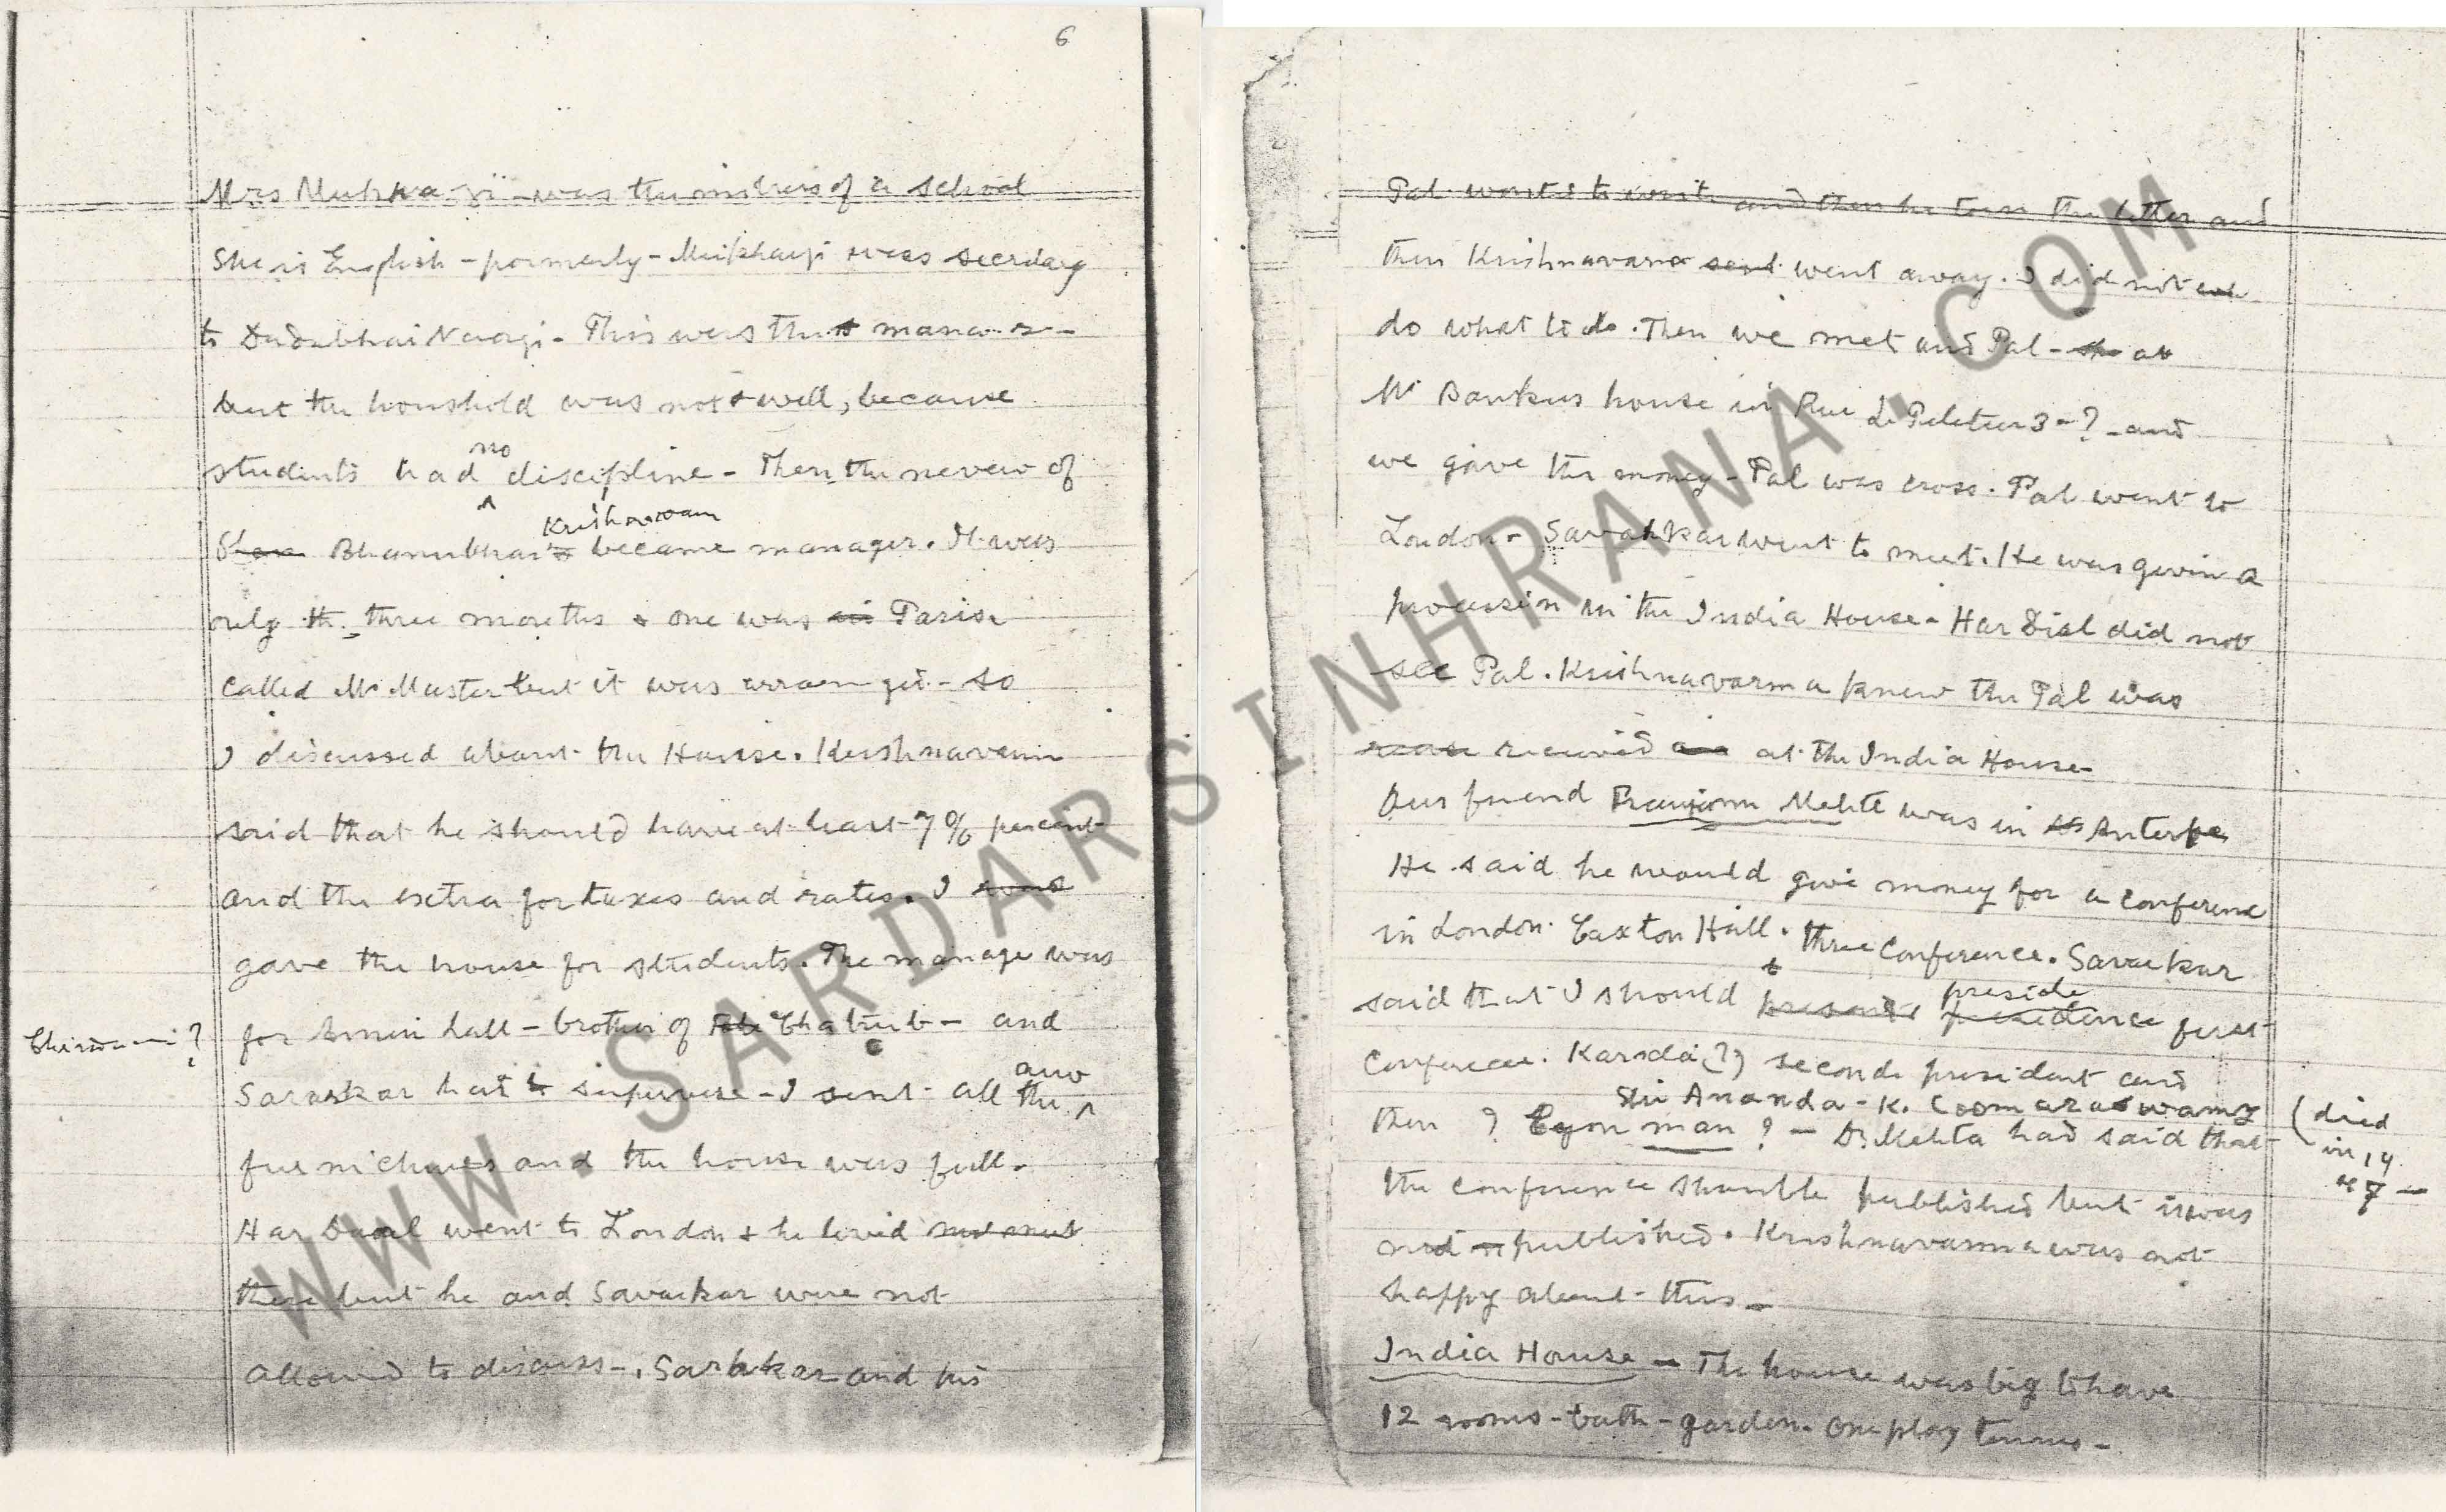 6
Mrs Mukhaji - was the mistress of a school
She is English - formerly - Mukhaji was secretary
to Dadabhai Naroji - This was the
but the houshold was not well, because
students had no discipline - Then the nevew of
Bhanubhai Krishnavarm became manager. It was
only th. three months & one was Paris
called Mr Master but it was - so
I discussed about the House. Krishnavarm
said that he should have at least 7% percent
and the extra for taxes and rates. I
gave the house for students. The manage was
for Amin Lall - brother of Chatrub - and
?
Savarkar had supervise - I sent all the and
furnichures and the house was full.
Har Dayal went to London & he lived
there but he and Savarkar were not
allowed to discuss -. Sarbkar and his
Pal wanted to and then he torn the letter and
then Krishnavarm sent went away. I did not
do what to do. Then we met and Pal - at
Mr Bankers house in Rue Le Peletier 3 - ? - and
we gave the money - Pal was cross. Pal went to
London - Savarkar went to meet. He was given a
procession in the India House - Har Dial did not
see Pal. Krishnavarma knew the Pal was
received at the India House -
Our friend Pranjivan Mehta was in Anterpe
He said he would give money for a conference
in London. Caxton Hall. three Conference. Savarkar
said that I should preside first
Conference. Karsda (?) seconde president and
Sir Ananda - K. Coomaraswamy
then ? Cyon man ? - Dr. Mehta had said that
(died
in 19
47 -
the conference should published but it was
not published. Krishnavarma was not
happy about this -
India House - The house was big to have
12 rooms - bath - garden. One play tennis -
WWW.SARDARSINHRANA.COM